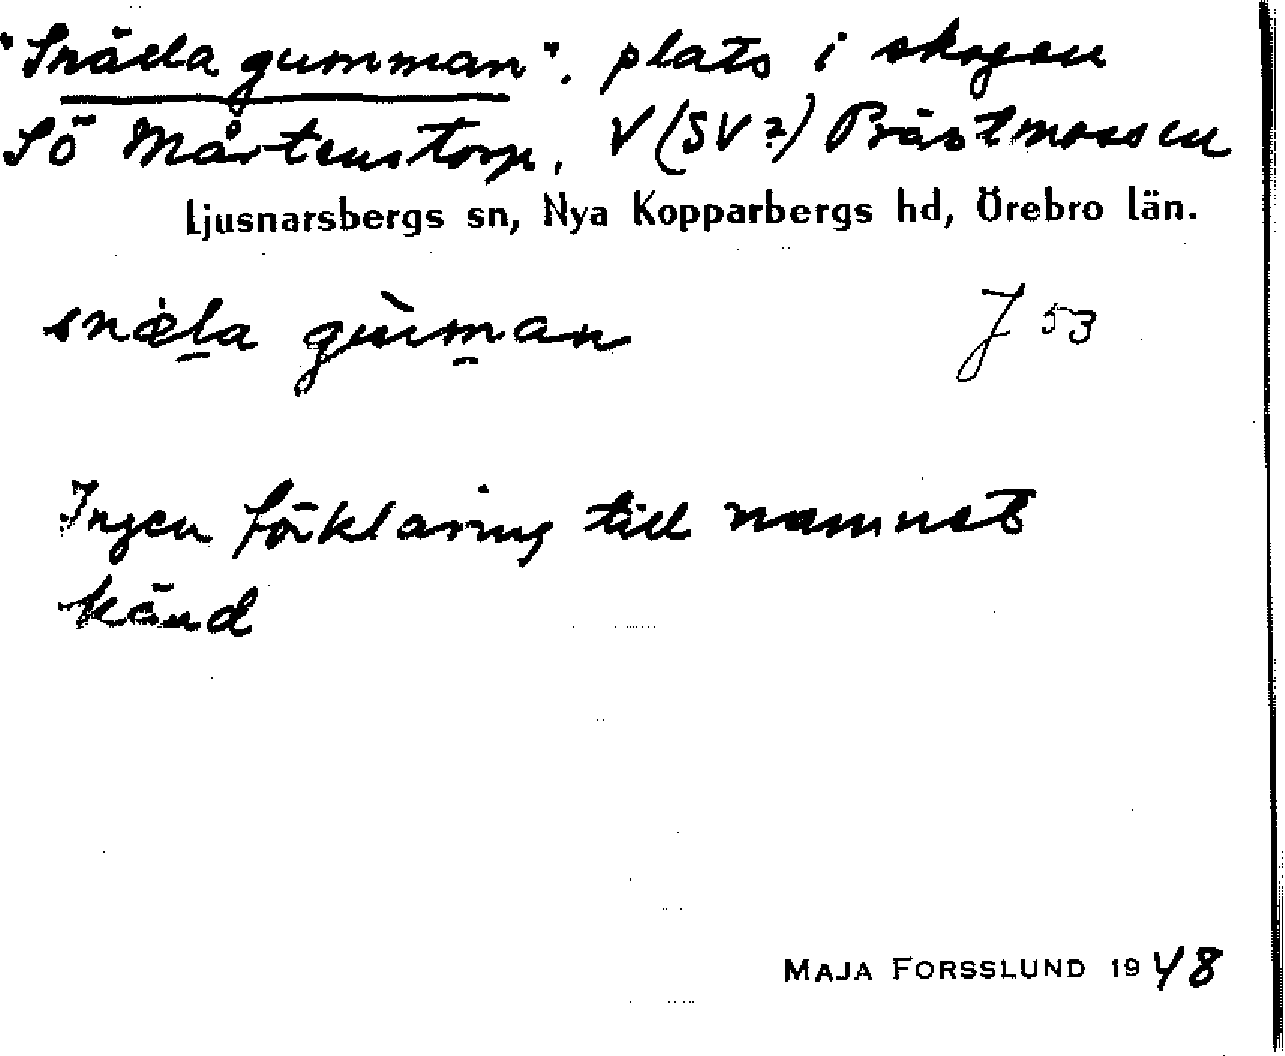 "Snälla gumman". plats i skogen
SÖ Mårtenstorp, V (SV?) Prästmossen
Ljusnarsbergs sn, Nya Kopparbergs hd, Örebro län.
snæ̀la gùman J 53
Ingen förklaring till namnet
känd
MAJA FORSSLUND 1948